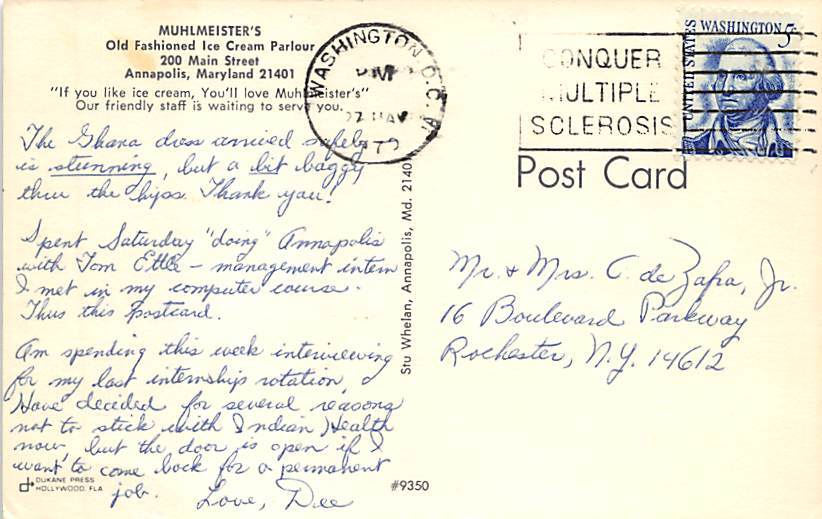 MUHLMEISTER'S
Old Fashioned Ice Cream Parlour
200 Main Street
Annapolis, Maryland 21401
"If you like ice cream, You'll love Muhlmeister's"
Our friendly staff is waiting to serve you.
The Ghana dress arrived safely
is stunning, but a bit baggy
thru the hips. Thank you!
Spent Saturday "doing" Annapolis
with Tom Ettle - management intern
I met in my computer course.
Thus this postcard.
Am spending this week interviewing
for my last internship rotation.
Have decided for several reasons
not to stick with Indian Health
now, but the door is open if I
want to come back for a permanent
job. Love, Dee
DUKANE PRESS
HOLLYWOOD, FLA
#9350
Stu Whelan, Annapolis, Md. 21401
WASHINGTON, D.C.
PM
27 MAY
CONQUER
MULTIPLE
SCLEROSIS
UNITED STATES
WASHINGTON 5c
Post Card
Mr. & Mrs. C. de Zafra, Jr.
16 Boulevard Parkway
Rochester, N.Y. 14612